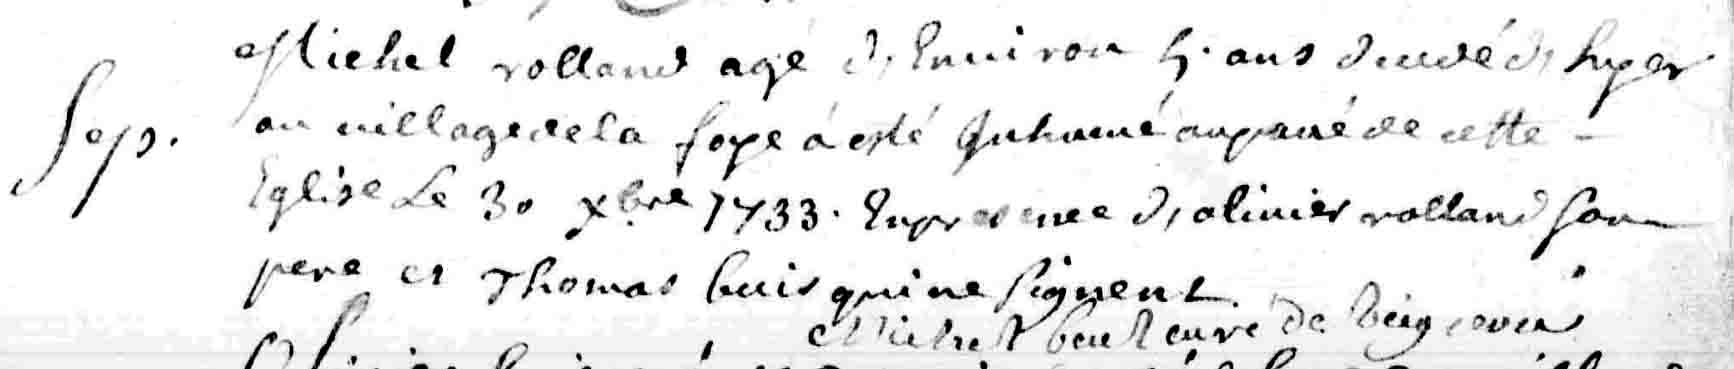 Michel rolland agé d'Environ 5. ans decedé d'hyer
Sep. au village de la foye á esté Inhumé au pavé de cette
Eglise Le 30 xbre 1733. En presence d'olivier rolland son
pere et Thomas buis qui ne signent.
Michel curé de